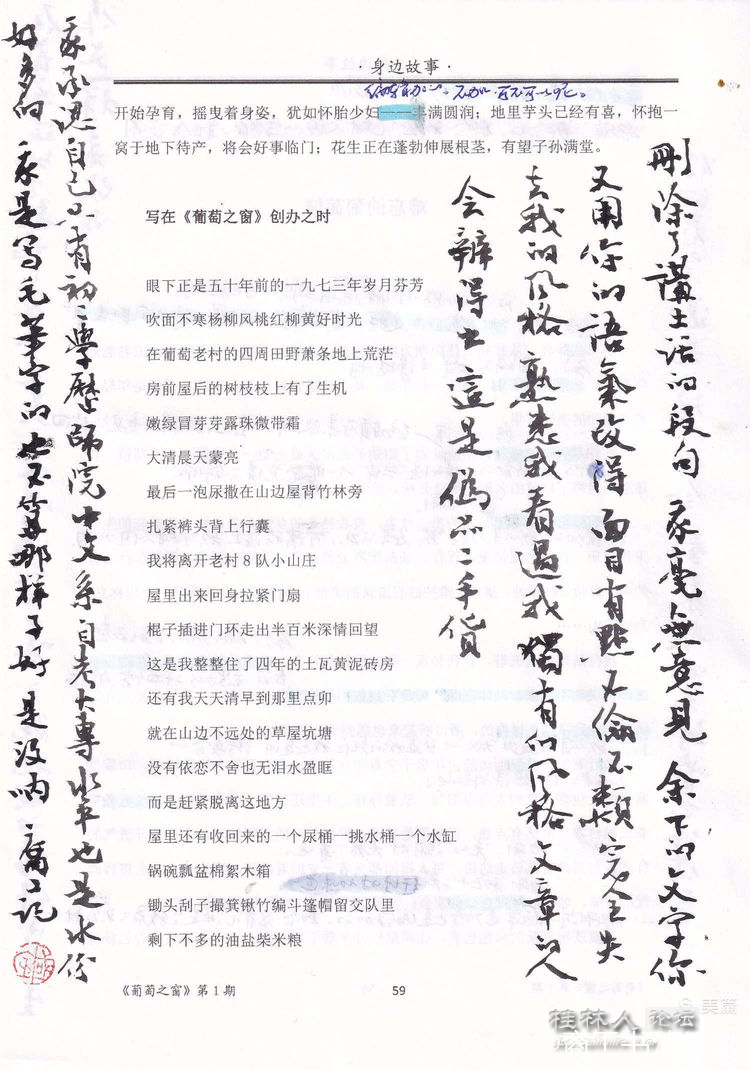 ·身边故事·
开始孕育，摇曳着身姿，犹如怀胎少妇——丰满圆润；地里芋头已经有喜，怀抱一
窝于地下待产，将会好事临门；花生正在蓬勃伸展根茎，有望子孙满堂。
写在《葡萄之窗》创办之时
眼下正是五十年前的一九七三年岁月芬芳
吹面不寒杨柳风桃红柳黄好时光
在葡萄老村的四周田野萧条地上荒茫
房前屋后的树枝枝上有了生机
嫩绿冒芽芽露珠微带霜
大清晨天蒙亮
最后一泡尿撒在山边屋背竹林旁
扎紧裤头背上行囊
我将离开老村8队小山庄
屋里出来回身拉紧门扇
棍子插进门环走出半百米深情回望
这是我整整住了四年的土瓦黄泥砖房
还有我天天清早到那里点卯
就在山边不远处的草屋坑塘
没有依恋不舍也无泪水盈眶
而是赶紧脱离这地方
屋里还有收回来的一个尿桶一挑水桶一个水缸
锅碗瓢盆棉絮木箱
锄头刮子撮箕锹竹编斗篷帽留交队里
剩下不多的油盐柴米粮
《葡萄之窗》第1期
59
刪除了講土话的段句 我毫無意見 余下的文字你
又用你的语氣改得面目有點不倫不類 完全失
去我的风格 熟悉我看過我獨有的风格文章的人
会辨得出 這是偽只二手貨
我承認自己只有初中學歷 師院中文系自考大專 水平也是水份
好多的 我是写毛筆字的 也不算那样子好 是没
美篇
桂林人论坛